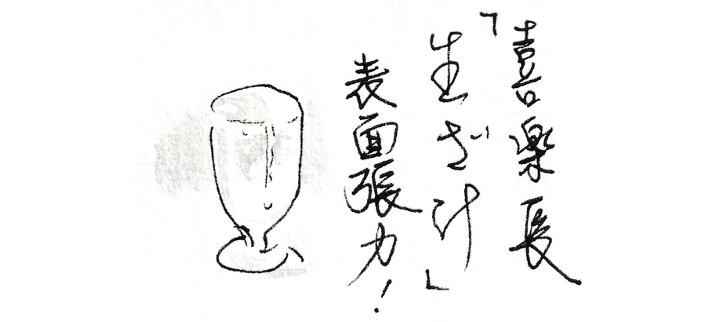 「喜楽長
生ざ汁」
表面張力!